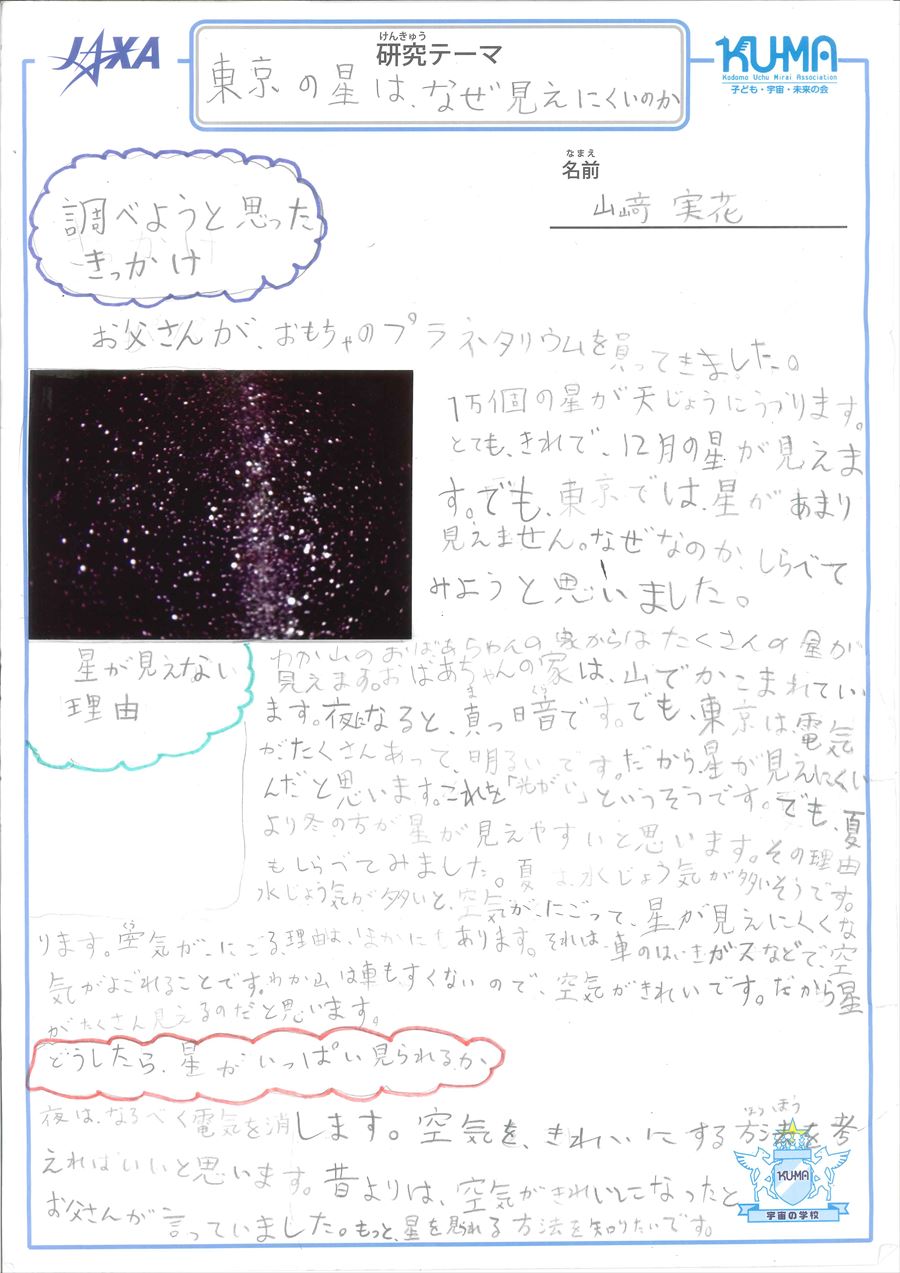 JAXA
けんきゅう
研究テーマ
東京の星は、なぜ見えにくいのか
KU-MA
Kodomo Uchu Mirai Association
子ども・宇宙・未来の会
なまえ
名前
山﨑 実花
調べようと思った
きっかけ
お父さんが、おもちゃのプラネタリウムを買ってきました。
1万個の星が天じょうにうつります。
とても、きれで、12月の星が見えま
す。でも、東京では、星があまり
見えません。なぜなのか、しらべて
みようと思いました。
星が見えない
理由
わか山のおばあちゃんの家からはたくさんの星が
見えます。おばあちゃんの家は、山でかこまれてい
ます。夜になると、真っ暗です。でも、東京は電気
ま くら
がたくさんあって、明るいです。だから星が見えにくい
んだと思います。これを「光がい」というそうです。でも、夏
より冬の方が星が見えやすいと思います。その理由
もしらべてみました。夏は、水じょう気が多いそうです。
水じょう気が多いと、空気が、にごって、星が見えにくくな
ります。空気が、にごる理由は、ほかにもあります。それは、車のはいきガスなどで、空
気がよごれることです。わか山は車もすくないので、空気がきれいです。だから星
がたくさん見えるのだと思います。
どうしたら、星がいっぱい見られるか、
夜は、なるべく電気を消します。空気を、きれいにする方法を考
ほうほう
えればいいと思います。昔よりは、空気がきれいになったと
お父さんが言っていました。もっと、星を見られる方法を知りたいです。
KUMA
宇宙の学校